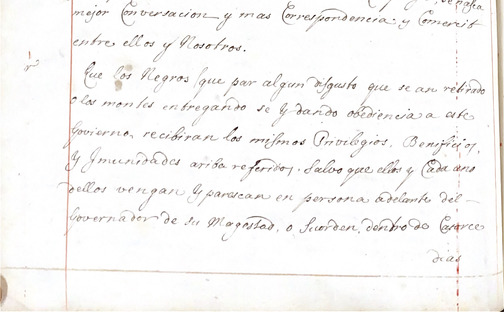 se haga
mejor Conversacion y mas Correspondencia, y Comercio
entre ellos y Nosotros.
Que los Negros que par algun disgusto que se an retirado
a los montes entregando se y dando obediencia a este
Govierno recibiran los mismos Privilegios, Benificios,
Y Jmunidades ariba referidos. Salvo que ellos y Cada uno
dellos vengan Y parescan en persona adelante del
Governador de su Magestad, o Suorden, dentro de Catorce
dias